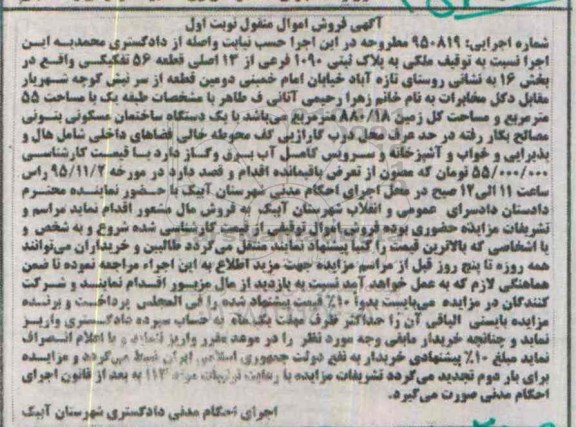 آگهی فروش اموال منقول نوبت اول
شماره اجرایی: ۹۵۰۸۱۹ مطروحه در این اجرا حسب نیابت واصله از دادگستری محمدیه این
اجرا نسبت به توقیف ملکی به پلاک ثبتی ۱۰۹۰ فرعی از ۱۳ اصلی قطعه ۵۶ تفکیکی واقع در
بخش ۱۶ به نشانی روستای تازه آباد خیابان امام خمینی دومین قطعه از سر نبش کوچه شهریار
مقابل دکل مخابرات به نام خانم زهرا رحیمی آتانی ف طاهر با مشخصات طبقه یک با مساحت ۵۵
مترمربع و مساحت کل زمین ۸۸۰/۱۸ مترمربع می‌باشد با یک دستگاه ساختمان مسکونی بتونی
مصالح بکار رفته در حد عرف محل درب کاراژیی کف محوطه خالی فضاهای داخلی شامل هال و
پذیرایی و خواب و آشپزخانه و سرویس کامل آب برق وگاز دارد با قیمت کارشناسی
۵۵/۰۰۰/۰۰۰ تومان که مصون از تعرض باقیمانده اقدام و قصد دارد در مورخه ۹۵/۱۱/۲ راس
ساعت ۱۱ الی۱۲ صبح در محل اجرای احکام مدنی شهرستان آبیک با حضور نماینده محترم
دادستان دادسرای عمومی و انقلاب شهرستان آبیک به فروش مال مشعور اقدام نماید مراسم و
تشریفات مزایده حضوری بوده فروش اموال توقیفی از قیمت کارشناسی شده شروع و به شخص و
یا اشخاصی که بالاترین قیمت را کتبا پیشنهاد نمایند منتقل می‌گردد طالبین و خریداران می‌توانند
همه روزه تا پنج روز قبل از مراسم مزایده جهت مزید اطلاع به این اجراء مراجعه نموده تا ضمن
هماهنگی لازم که به عمل خواهد آمد نسبت به بازدید از مال مزبور اقدام نمایند و شرکت
کنندگان در مزایده می‌بایست بدوا ۱۰٪ قیمت پیشنهاد شده را فی المجلس پرداخت و برنده
مزایده بایستی الباقی آن را حداکثر ظرف مهلت یکماه به حساب سپرده دادگستری واریز
نماید و چنانچه خریدار مابقی وجه مورد نظر را در موعد مقرر واریز ننماید و یا اعلام انصراف
نماید مبلغ ۱۰٪ پیشنهادی خریدار به نفع دولت جمهوری اسلامی ایران ضبط می‌گردد و مزایده
برای بار دوم تجدید می‌گردد تشریفات مزایده با رعایت ترتیبات مواد ۱۱۳ به بعد از قانون اجرای
احکام مدنی صورت می‌گیرد.
اجرای احکام مدنی دادگستری شهرستان آبیک